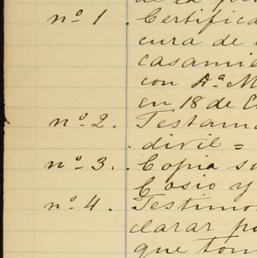 nº 1 . Certifica
cura de
casami
con Dª M
en 18 de
nº 2 . Testam
. divil =
nº 3 . . Copia su
Cosio y
nº 4 . Testimo
clarar po
que tom